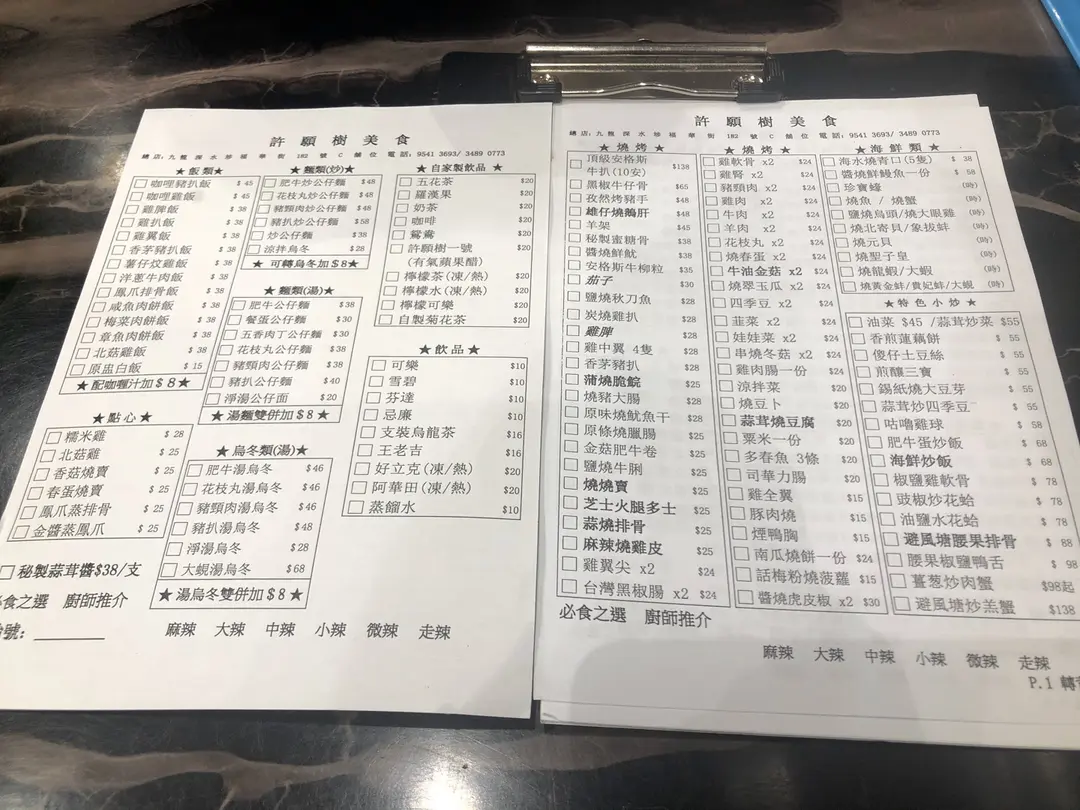 許願樹美食
總店:九龍深水埗福華街 182 號 C 舖位 電話:9541 3693/ 3489 0773
★飯類★
咖哩豬扒飯 $ 45
咖哩雞飯 $ 45
雞脾飯 $ 38
雞扒飯 $ 38
雞翼飯 $ 38
香茅豬扒飯 $ 38
薯仔炆雞飯 $ 38
洋蔥牛肉飯 $ 38
鳳爪排骨飯 $ 38
咸魚肉餅飯 $ 38
梅菜肉餅飯 $ 38
章魚肉餅飯 $ 38
北菇雞飯 $ 38
原盅白飯 $ 15
★配咖喱汁加$8★
★點心★
糯米雞 $ 28
北菇雞 $ 25
香菇燒賣 $ 25
春蛋燒賣 $ 25
鳳爪蒸排骨 $ 25
金醬蒸鳳爪 $ 25
秘製蒜茸醬$38/支
必食之選 廚師推介
號:
★麵類(炒)★
肥牛炒公仔麵 $48
花枝丸炒公仔麵 $48
豬頸肉炒公仔麵 $48
豬扒炒公仔麵 $58
炒公仔麵 $38
涼拌烏冬 $28
★可轉烏冬加$8★
★麵類(湯)★
肥牛公仔麵 $38
餐蛋公仔麵 $30
五香肉丁公仔麵 $30
花枝丸公仔麵 $38
豬頸肉公仔麵 $38
豬扒公仔麵 $40
淨湯公仔面 $20
★湯麵雙併加$8★
★烏冬類(湯)★
肥牛湯烏冬 $46
花枝丸湯烏冬 $46
豬頸肉湯烏冬 $46
豬扒湯烏冬 $48
淨湯烏冬 $28
大蜆湯烏冬 $68
★湯烏冬雙併加$8★
★自家製飲品★
五花茶 $20
羅漢果 $20
奶茶 $20
咖啡 $20
鴛鴦 $20
許願樹一號 $20
(有氣蘋果醋)
檸檬茶(凍/熱) $20
檸檬水(凍/熱) $20
檸檬可樂 $20
自製菊花茶 $20
★飲品★
可樂 $10
雪碧 $10
芬達 $10
忌廉 $10
支裝烏龍茶 $16
王老吉 $16
好立克(凍/熱) $20
阿華田(凍/熱) $20
蒸餾水 $10
麻辣 大辣 中辣 小辣 微辣 走辣
許願樹美食
總店:九龍深水埗福華街 182 號 C 舖位 電話:9541 3693/ 3489 0773
★燒烤★
頂級安格斯
牛扒(10安) $138
黑椒牛仔骨 $65
孜然烤豬手 $48
雄仔燒鵝肝 $48
羊架 $45
秘製蜜糖骨 $38
醬燒鮮魷 $38
安格斯牛柳粒 $35
茄子 $30
鹽燒秋刀魚 $28
炭燒雞扒 $30
雞脾 $30
雞中翼 4隻 $28
香茅豬扒 $28
蒲燒脆鯇 $25
燒豬大腸 $28
原味燒魷魚干 $28
原條燒臘腸 $28
金菇肥牛卷 $25
鹽燒牛脷 $25
燒燒賣 $25
芝士火腿多士 $25
蒜燒排骨 $25
麻辣燒雞皮 $25
雞翼尖 x2 $24
台灣黑椒腸 x2 $24
必食之選 廚師推介
★燒烤★
雞軟骨 x2 $24
雞腎 x2 $24
豬頸肉 x2 $24
雞肉 x2 $24
牛肉 x2 $24
羊肉 x2 $24
花枝丸 x2 $24
燒春蛋 x2 $24
牛油金菇 x2 $24
燒翠玉瓜 x2 $24
四季豆 x2 $24
韮菜 x2 $24
娃娃菜 x2 $24
串燒冬菇 x2 $24
雞肉腸一份 $24
涼拌菜 $20
燒豆卜 $20
蒜茸燒豆腐 $20
粟米一份 $20
多春魚 3條 $20
司華力腸 $20
雞全翼 $15
豚肉燒 $15
煙鴨胸 $15
南瓜燒餅一份 $24
話梅粉燒菠蘿 $15
醬燒虎皮椒 x2 $30
★海鮮類★
海水燒青口(5隻) $ 38
醬燒鮮鰻魚一份 $ 58
珍寶蠔 (時)
燒魚 / 燒蟹 (時)
鹽燒烏頭/燒大眼雞 (時)
燒北寄貝/象拔蚌 (時)
燒元貝 (時)
燒聖子皇 (時)
燒龍蝦/大蝦 (時)
燒黃金蚌/貴妃蚌/大蜆 (時)
★特色小炒★
油菜 $45 /蒜茸炒菜 $55
香煎蓮藕餅 $ 55
傻仔土豆絲 $ 55
煎釀三寶 $ 55
錫紙燒大豆芽 $ 55
蒜茸炒四季豆 $ 55
咕嚕雞球 $ 58
肥牛蛋炒飯 $ 68
海鮮炒飯 $ 68
椒鹽雞軟骨 $ 78
豉椒炒花蛤 $ 78
油鹽水花蛤 $ 78
避風塘腰果排骨 $ 88
腰果椒鹽鴨舌 $ 98
薑葱炒肉蟹 $98起
避風塘炒羔蟹 $138
麻辣 大辣 中辣 小辣 微辣 走辣
P.1 轉